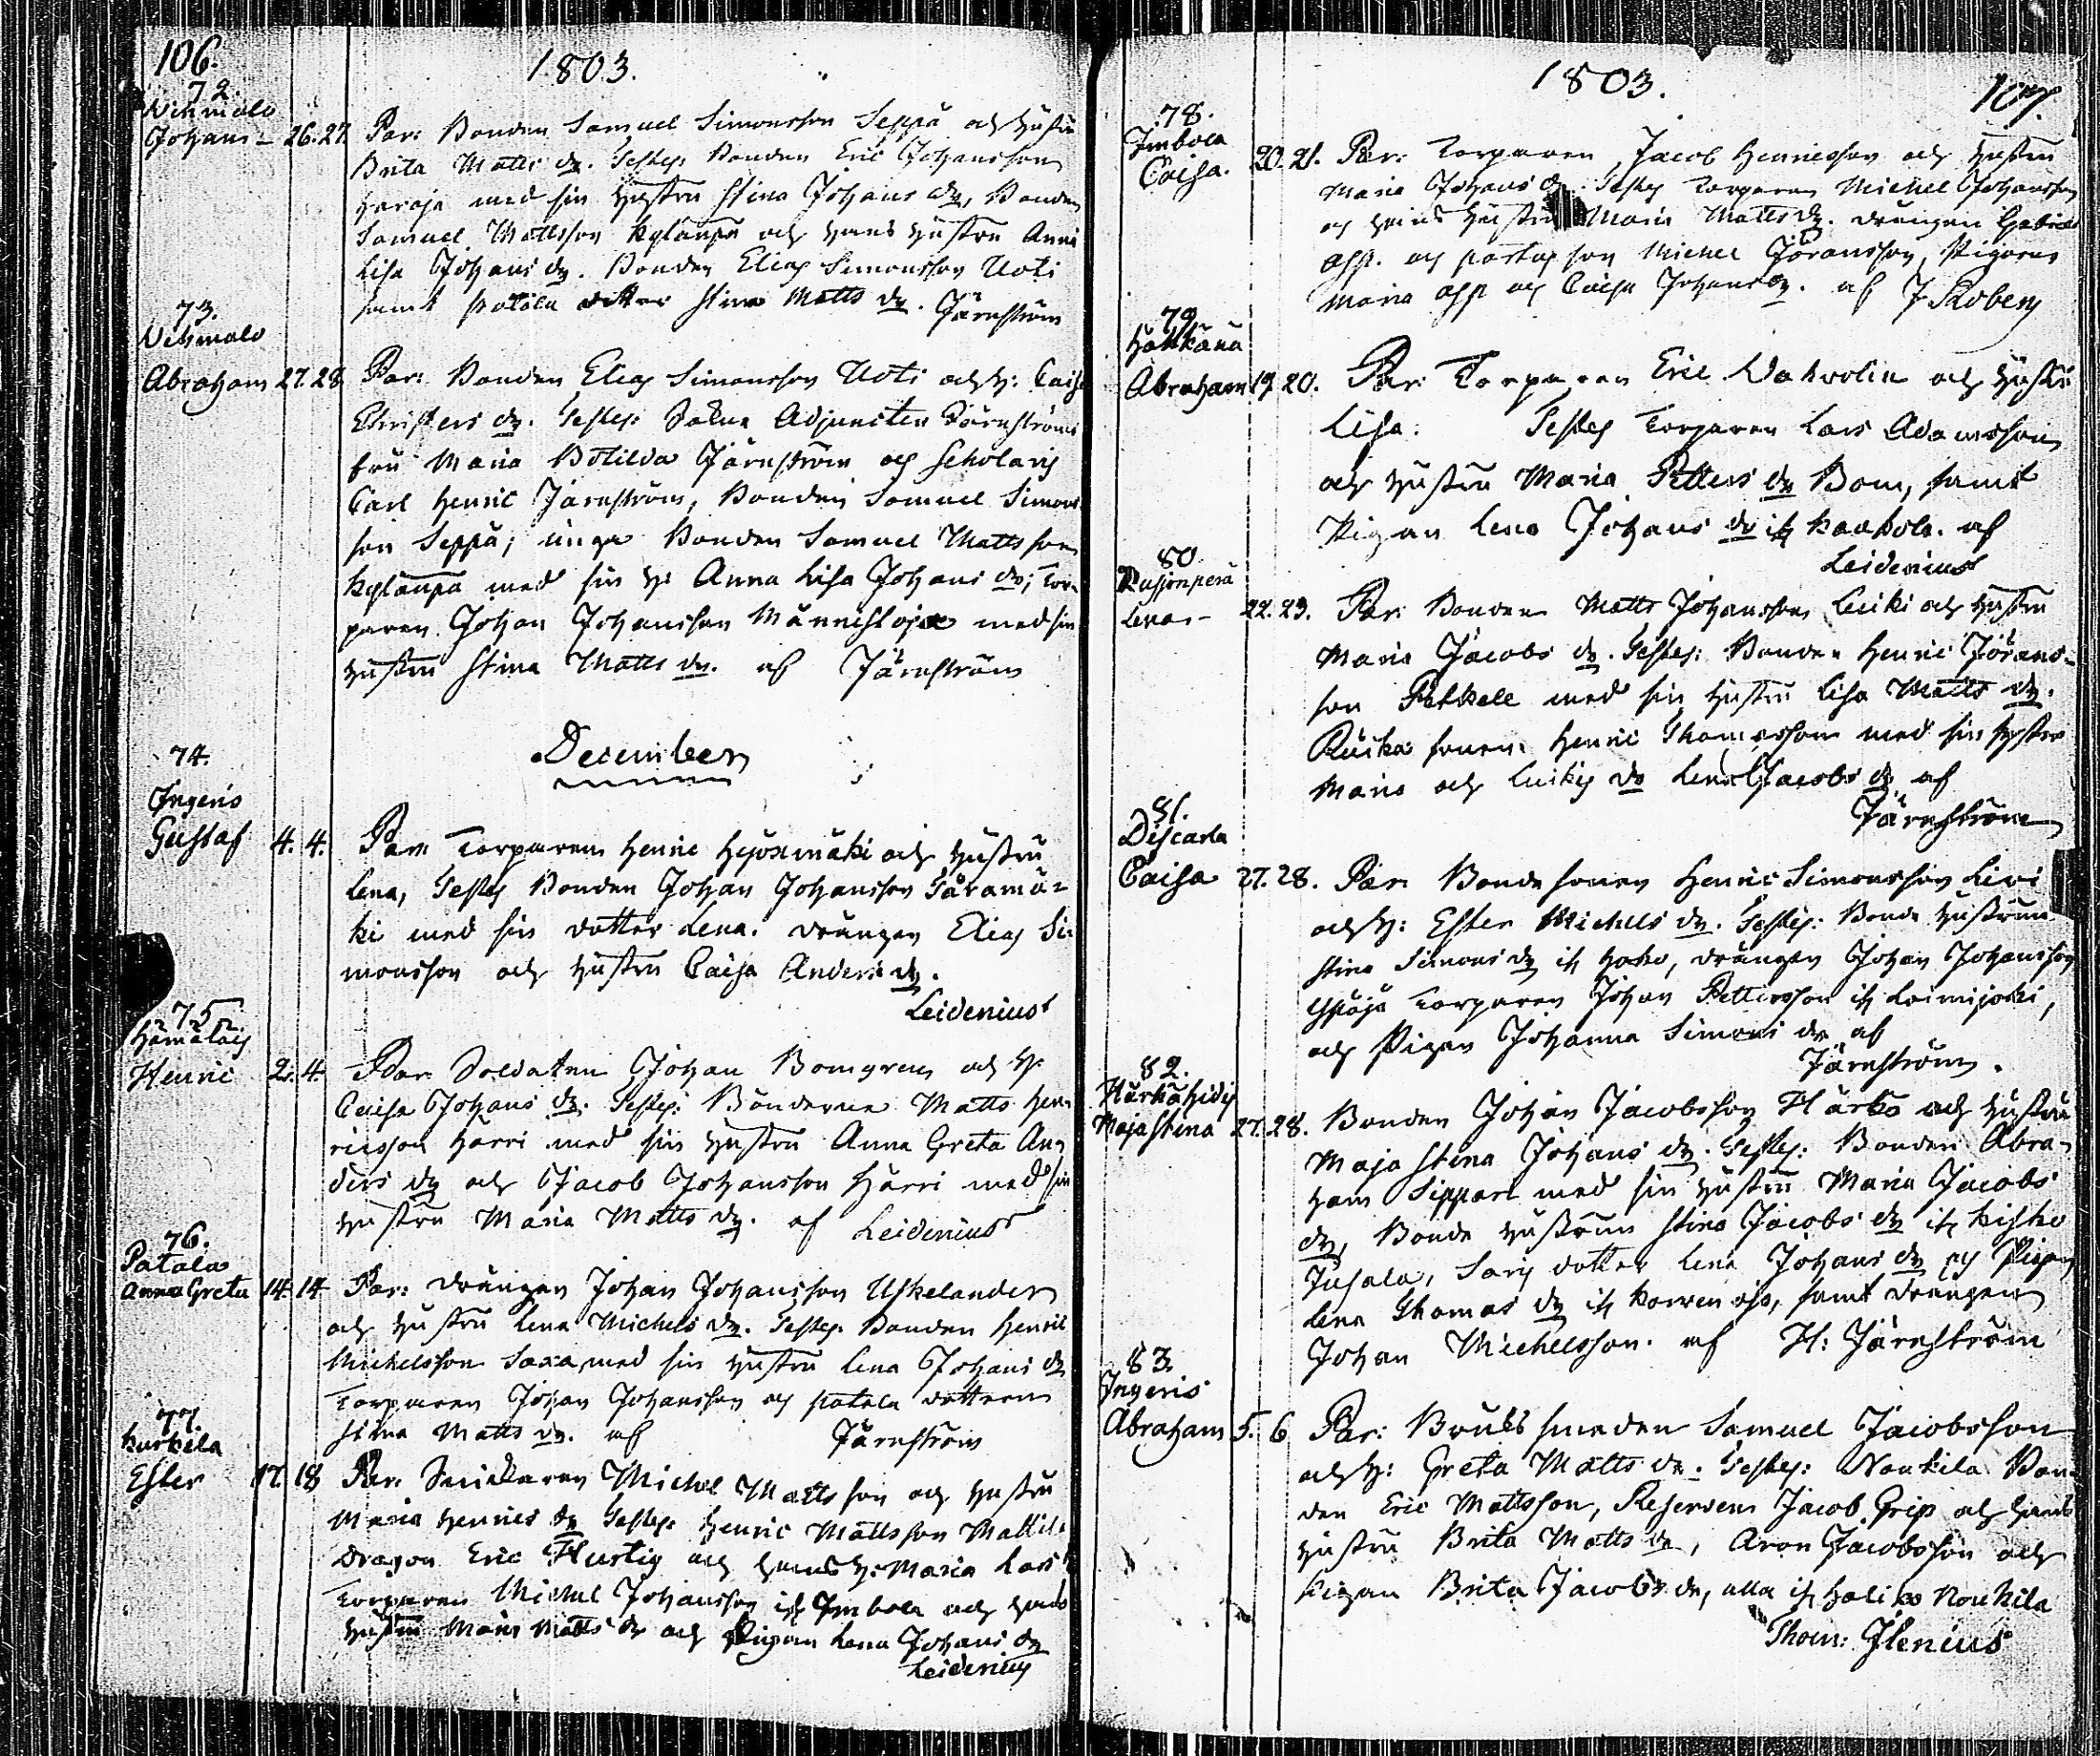 106.
1803.
72.
Wehmalo
Johans - 26. 27. Par: Bonden Samuel Simonsson Seppä och hustru
Brita Matts dr. Testes Bonden Eric Johansson
Haroja med sin hustru Stina Johans dr, Bonden
Samuel Mattsson Kylänpä och hans hustru Anna
Lisa Johans dr. Bonden Elias Simonsson Uoti
samt Patala dotter Stina Matts dr. Järnström
73.
Wehmalo
Abraham 27. 28. Par: Bonden Elias Simonsson Uoti och H: Caisa
Christers dr. Testes: Sockne Adjuncten Järnströms
fru Maria Botilda Järnström och Scholaris
Carl Henric Järnström, Bonden Samuel Simons
son Seppä; unga Bonden Samuel Mattsson
Kylänpä med sin H: Anna Lisa Johans dr; Tor-
paren Johan Johansson Männistoja med sin
hustru Stina Matts dr. af Järnström
December
74.
Ingeris
Gustaf 4. 4. Par: Torparen Henric Hyöxmäki och hustru
Lena, Testes Bonden Johan Johansson Järamä-
ki med sin dotter Lena. drängen Elias Si-
monsson och hustru Caisa Anders dr.
Leidenius
75.
Hämälais
Henric 2. 4. Par: Soldaten Johan Bomgren och H:
Caisa Johans dr. Testes: Bönderne Matts Hen-
ricsson Härri med sin hustru Anna Greta An-
ders dr och Jacob Johansson Härri med sin
hustru Maria Matts dr. af Leidenius
76.
Patala
Anna Greta 14. 14. Par: drängen Johan Johansson Uskelander
och hustru Lena Michels dr. Testes. Bonden Henric
Michelsson Saxa, med sin hustru Lena Johans dr
Torparen Johan Johansson och Patala dottren
Stina Matts dr. af Järnström
77.
Kurkela
Ester 17. 18 Par: Snickaren Michel Mattsson och hustru
Maria Henrics dr Testes: Henric Mattsson Mattila
Dragon Eric Hurtig och hans H: Maria Lars
Torparen Michel Johansson ifr Imbola och hans
hustru Maria Matts dr och Pigan Lena Johans dr
Leidenius
1803.
107.
78.
Imbola
Caisa. 20. 21. Par: Torparen Jacob Henricsson och hustru
Maria Johans dr. Testes Torparen Michel Johansson
och hans hustru Maria Matts dr. drängen Gabriel
och Michel Jöransson, Pigorna
Maria och Caisa Johans dr. af J Roberg
79.
Hähkänä
Abraham 19. 20. Par: Torparen Eric Wahrolin och hustru
Lisa. Testes Torparen Lars Adamsson
och hustru Maria Petters dr Bom, samt
Pigan Lena Johans dr ifr Kaukola. af
Leidenius
80.
Rasjonperä
Lena. - 22. 23. Par: Bonden Matts Johansson Cuiki och hustru
Maria Jacobs dr. Testes: Bonden Henric Jörans-
son Pelkele med sin hustru Lisa Matts dr.
sonen Henric Thomasson med sin hustru
Maria och Cuikis dr Lena Jacobs dr af
Järnström
81.
Discarla
Caisa 27. 28. Par: Bonde sonen Henric Simonsson Kivi
och H: Ester Michels dr. Testes: Bonde hustrun
Stina Simons dr ifr Hosio, drängen Johan Johansson
Torparen Johan Pettersson ifr Loimijoki,
och Pigan Johanna Simons dr af
Järnström.
82.
Härkähidis
Maja Stina 27. 28. Bonden Johan Jacobsson Härkä och hustru
Maja Stina Johans dr. Testes: Bonden Abra-
ham Sippari med sin hustru Maria Jacobs
dr, Bonde hustrun Stina Jacobs dr ifr Kisko
Jusala, Saris dotter Lena Johans dr och Pigan
Lena Thomas dr ifr Korvenoja, samt drängen
Johan Michelsson. af H: Järnström
83.
Ingeris
Abraham 5. 6 Par: Bruks smeden Samuel Jacobsson
och H: Greta Matts dr. Testes: Naukila Bon-
den Eric Mattsson, Reserven Jacob Grip och hans
hustru Brita Matts dr, Aron Jacobsson och
Pigan Brita Jacobs dr, alla ifr Haliko Naukila
Thom: Ilenius